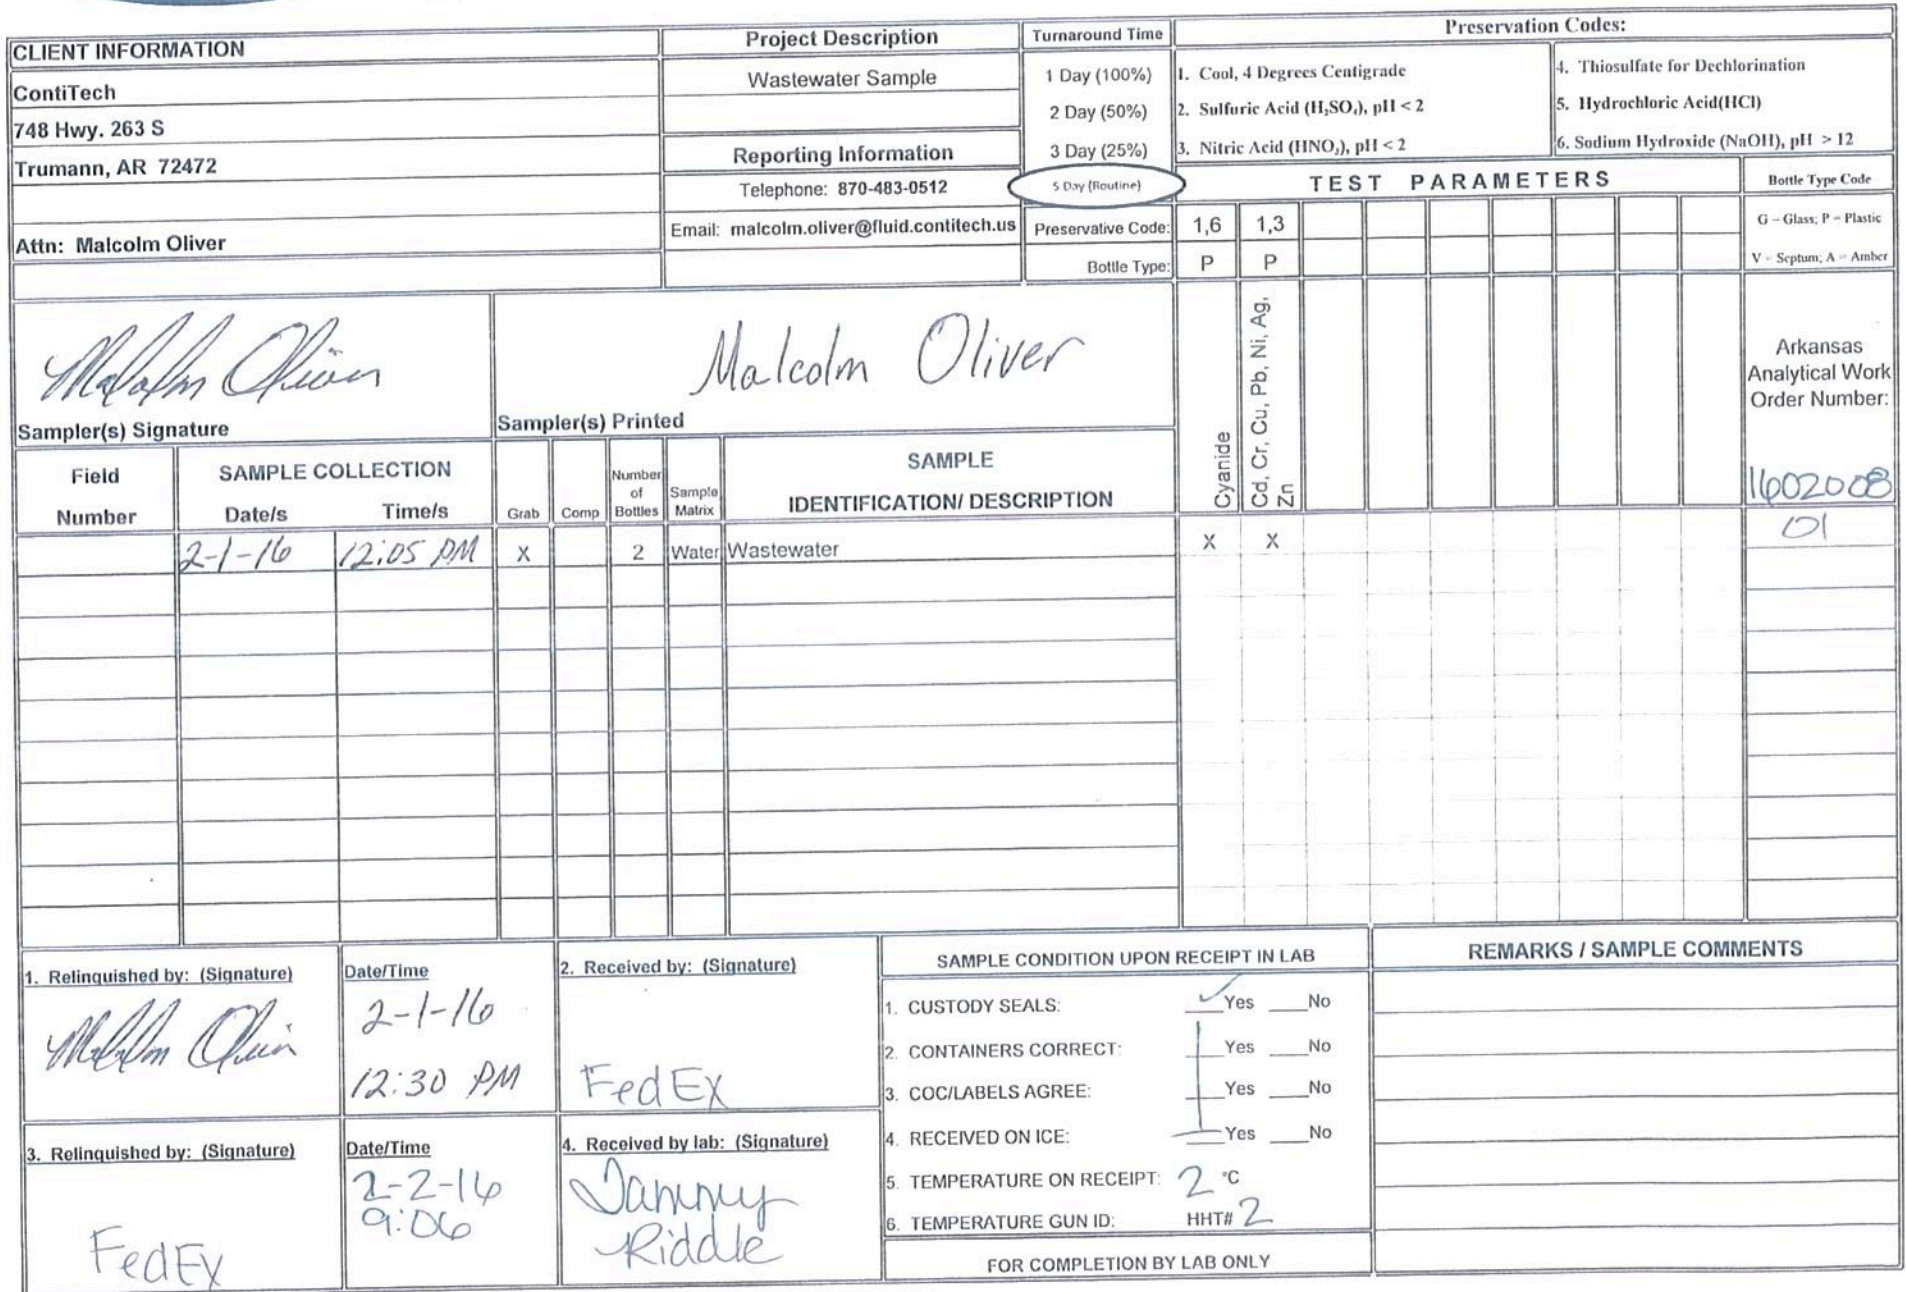 CLIENT INFORMATION
ContiTech
748 Hwy. 263 S
Trumann, AR 72472
Attn: Malcolm Oliver
Project Description
Wastewater Sample
Reporting Information
Telephone: 870-483-0512
Email: malcolm.oliver@fluid.contitech.us
Turnaround Time
1 Day (100%)
2 Day (50%)
3 Day (25%)
5 Day (Routine)
Preservative Code: 1,6 1,3
Bottle Type: P P
Preservation Codes:
1. Cool, 4 Degrees Centigrade
2. Sulfuric Acid (H₂SO₄), pH < 2
3. Nitric Acid (HNO₃), pH < 2
4. Thiosulfate for Dechlorination
5. Hydrochloric Acid(HCl)
6. Sodium Hydroxide (NaOH), pH > 12
TEST PARAMETERS
Bottle Type Code
G – Glass; P – Plastic
V – Septum; A – Amber
Malcolm Oliver
Sampler(s) Signature
Malcolm Oliver
Sampler(s) Printed
Cyanide
Cd, Cr, Cu, Pb, Ni, Ag,
Zn
Arkansas
Analytical Work
Order Number:
1602008
Field
Number
SAMPLE COLLECTION
Date/s Time/s
Grab
Comp
Number
of
Bottles
Sample
Matrix
SAMPLE
IDENTIFICATION/ DESCRIPTION
2-1-16 12:05 PM X 2 Water Wastewater X X 01
1. Relinquished by: (Signature)
Malcolm Oliver
Date/Time
2-1-16
12:30 PM
2. Received by: (Signature)
FedEx
3. Relinquished by: (Signature)
FedEx
Date/Time
2-2-16
9:06
4. Received by lab: (Signature)
Tammy
Riddle
SAMPLE CONDITION UPON RECEIPT IN LAB
1. CUSTODY SEALS: Yes No
2. CONTAINERS CORRECT: Yes No
3. COC/LABELS AGREE: Yes No
4. RECEIVED ON ICE: Yes No
5. TEMPERATURE ON RECEIPT: 2 °C
6. TEMPERATURE GUN ID: HHT# 2
FOR COMPLETION BY LAB ONLY
REMARKS / SAMPLE COMMENTS